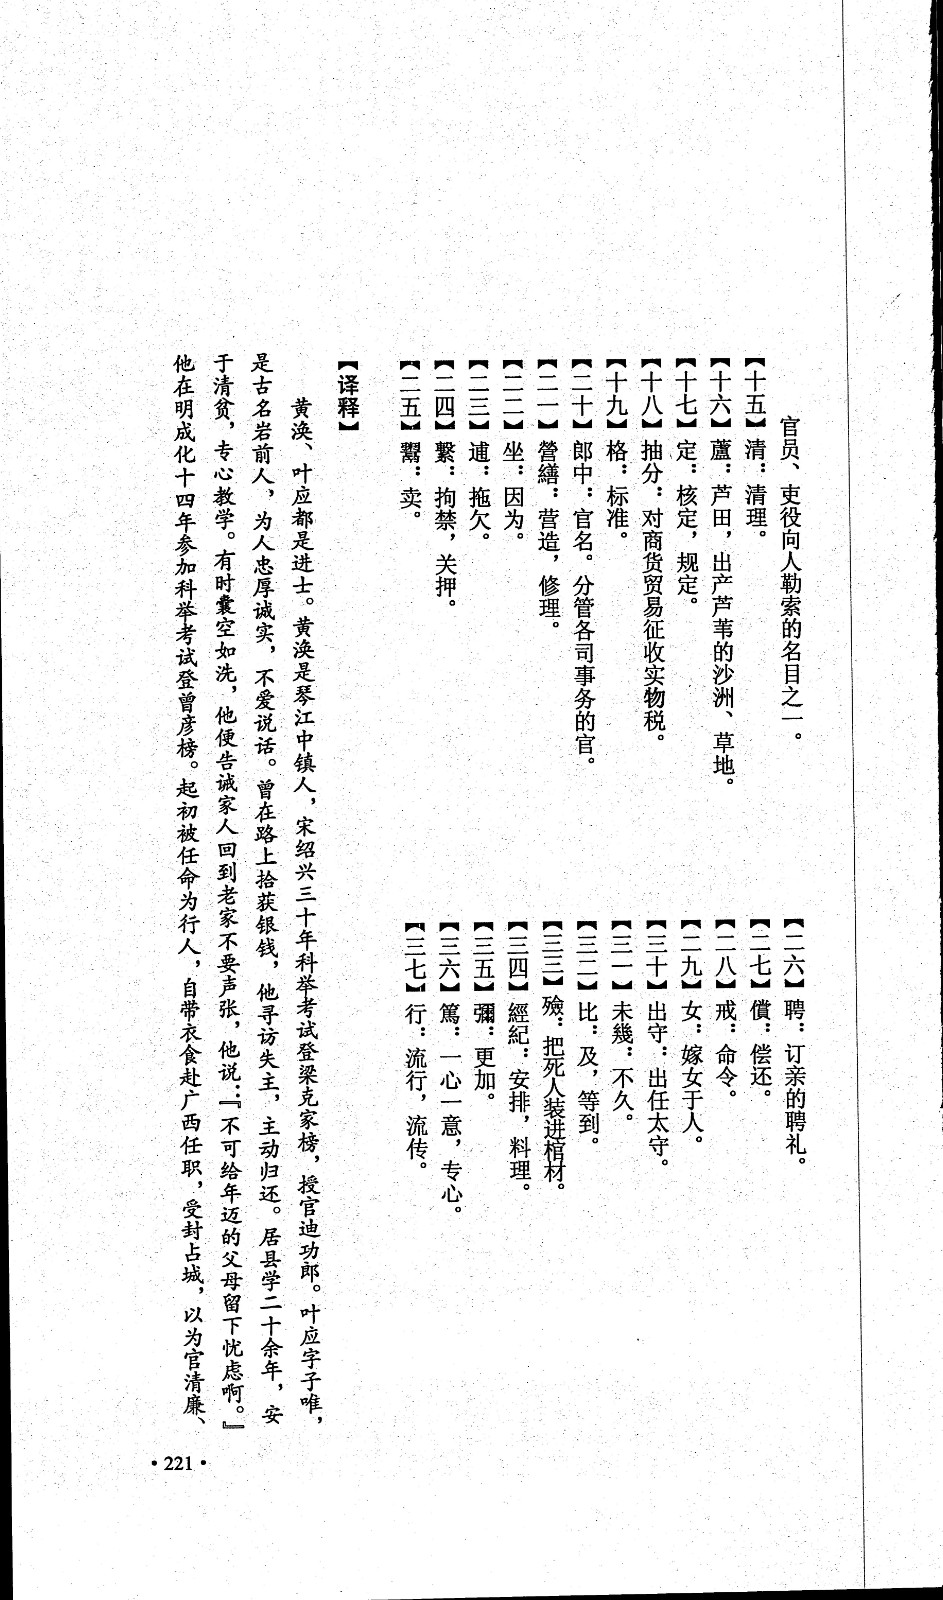 官员、吏役向人勒索的名目之一。
【十五】清：清理。
【十六】蘆：芦田，出产芦苇的沙洲、草地。
【十七】定：核定，规定。
【十八】抽分：对商货贸易征收实物税。
【十九】格：标准。
【二十】郎中：官名。分管各司事务的官。
【二一】營繕：营造，修理。
【二二】坐：因为。
【二三】逋：拖欠。
【二四】繫：拘禁，关押。
【二五】鬻：卖。
【二六】聘：订亲的聘礼。
【二七】償：偿还。
【二八】戒：命令。
【二九】女：嫁女于人。
【三十】出守：出任太守。
【三一】未幾：不久。
【三二】比：及，等到。
【三三】殮：把死人装进棺材。
【三四】經紀：安排，料理。
【三五】彌：更加。
【三六】篤：一心一意，专心。
【三七】行：流行，流传。
【译释】
黄涣、叶应都是进士。黄涣是琴江中镇人，宋绍兴三十年科举考试登梁克家榜，授官迪功郎。叶应字子唯，
是古名岩前人，为人忠厚诚实，不爱说话。曾在路上拾获银钱，他寻访失主，主动归还。居县学二十余年，安
于清贫，专心教学。有时囊空如洗，他便告诫家人回到老家不要声张，他说：『不可给年迈的父母留下忧虑啊。』
他在明成化十四年参加科举考试登曾彦榜。起初被任命为行人，自带衣食赴广西任职，受封占城，以为官清廉、
·221·